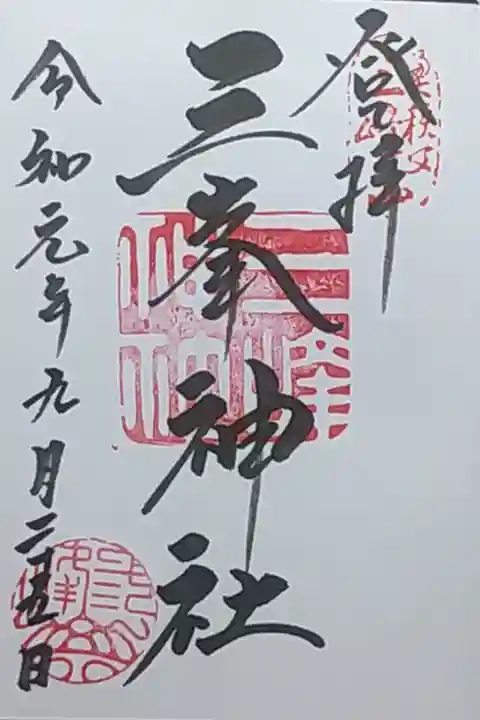 奥秩父
登拝
三峯神社
令和元年九月二十五日